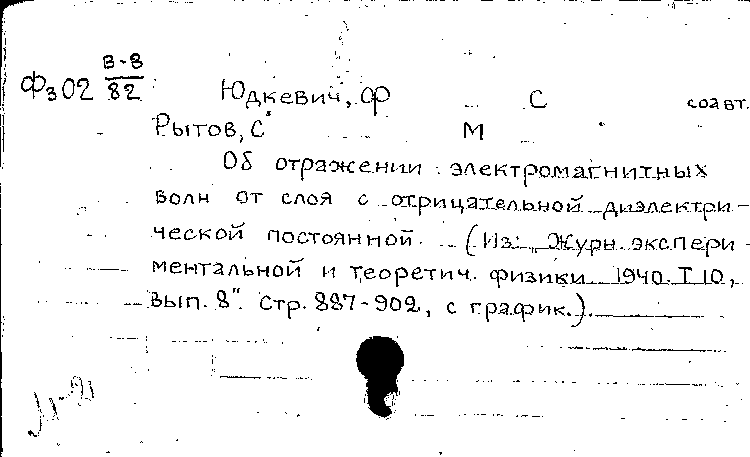 В-8
Фз02 82 Юдкевич, Ф С соавт.
Рытов, С М
Об отражении электромагнитных
волн от слоя с отрицательной диэлектри-
ческой постоянной. (Из: „Журн. экспери-
ментальной и теоретич. физики 1940. Т 10,
вып. 8". Стр. 887-902, с график.).